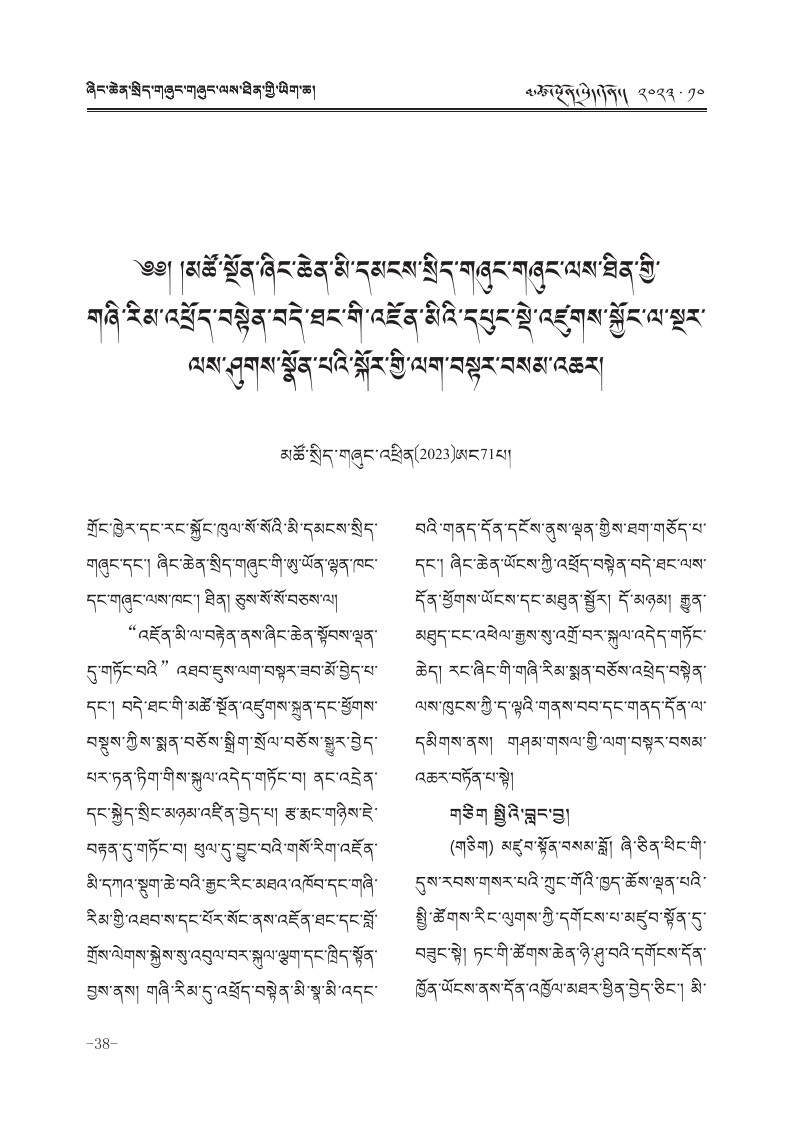 ཞིང་ཆེན་སྲིད་གཞུང་གཞུང་ལས་ཐིན་གྱི་ཡིག་ཆ།
༢༠༢༣ · ༡༠
༄༅། །མཚོ་སྔོན་ཞིང་ཆེན་མི་དམངས་སྲིད་གཞུང་གཞུང་ལས་ཐིན་གྱི་
གཞི་རིམ་འཕྲོད་བསྟེན་བདེ་ཐང་གི་འཛོན་མིའི་དཔུང་སྡེ་འཛུགས་སྐྱོང་ལ་སྔར་
ལས་ཤུགས་སྣོན་པའི་སྐོར་གྱི་ལག་བསྟར་བསམ་འཆར།
མཚོ་སྲིད་གཞུང་འཕྲིན(2023)ཨང71པ།
གྲོང་ཁྱེར་དང་རང་སྐྱོང་ཁུལ་སོ་སོའི་མི་དམངས་སྲིད་
གཞུང་དང༌། ཞིང་ཆེན་སྲིད་གཞུང་གི་ཨུ་ཡོན་ལྷན་ཁང་
དང་གཞུང་ལས་ཁང༌། ཐིན། ཅུས་སོ་སོ་བཅས་ལ།
“འཛོན་མི་ལ་བརྟེན་ནས་ཞིང་ཆེན་སྟོབས་ལྡན་
དུ་གཏོང་བའི” འཐབ་ཇུས་ལག་བསྟར་ཟབ་མོ་བྱེད་པ་
དང༌། བདེ་ཐང་གི་མཚོ་སྔོན་འཛུགས་སྐྲུན་དང་ཕྱོགས་
བསྡུས་ཀྱིས་སྨན་བཅོས་སྒྲིག་སྲོལ་བཅོས་སྒྱུར་བྱེད་
པར་ཏན་ཏིག་གིས་སྐུལ་འདེད་གཏོང་བ། ནང་འདྲེན་
དང་སྐྱེད་སྲིང་མཉམ་འཛིན་བྱེད་པ། རྩ་རྐང་གཉིས་ཇེ་
བརྟན་དུ་གཏོང་བ། ཕུལ་དུ་བྱུང་བའི་གསོ་རིག་འཛོན་
མི་དཀའ་སྡུག་ཆེ་བའི་རྒྱང་རིང་མཐའ་འཁོབ་དང་གཞི་
རིམ་གྱི་འཐབ་ས་དང་པོར་སོང་ནས་འཛོན་ཐང་དང་བློ་
གྲོས་ལེགས་སྐྱེས་སུ་འབུལ་བར་སྐུལ་ལྕག་དང་ཁྲིད་སྟོན་
བྱས་ནས། གཞི་རིམ་དུ་འཕྲོད་བསྟེན་མི་སྣ་མི་འདང་
བའི་གནད་དོན་དངོས་ནུས་ལྡན་གྱིས་ཐག་གཅོད་པ་
དང༌། ཞིང་ཆེན་ཡོངས་ཀྱི་འཕྲོད་བསྟེན་བདེ་ཐང་ལས་
དོན་ཕྱོགས་ཡོངས་དང་མཐུན་སྦྱོར། དོ་མཉམ། རྒྱུན་
མཐུད་ངང་འཕེལ་རྒྱས་སུ་འགྲོ་བར་སྐུལ་འདེད་གཏོང་
ཆེད། རང་ཞིང་གི་གཞི་རིམ་སྨན་བཅོས་འཕྲོད་བསྟེན་
ལས་ཁུངས་ཀྱི་ད་ལྟའི་གནས་བབ་དང་གནད་དོན་ལ་
དམིགས་ནས། གཤམ་གསལ་གྱི་ལག་བསྟར་བསམ་
འཆར་བཏོན་པ་སྟེ།
གཅིག སྤྱིའི་བླང་བྱ།
(གཅིག) མཛུབ་སྟོན་བསམ་བློ། ཞི་ཅིན་ཕིང་གི་
དུས་རབས་གསར་པའི་ཀྲུང་གོའི་ཁྱད་ཆོས་ལྡན་པའི་
སྤྱི་ཚོགས་རིང་ལུགས་ཀྱི་དགོངས་པ་མཛུབ་སྟོན་དུ་
བཟུང་སྟེ། ཏང་གི་ཚོགས་ཆེན་ཉི་ཤུ་བའི་དགོངས་དོན་
ཁྱོན་ཡོངས་ནས་དོན་འཁྱོལ་མཐར་ཕྱིན་བྱེད་ཅིང༌། མི་
–38–